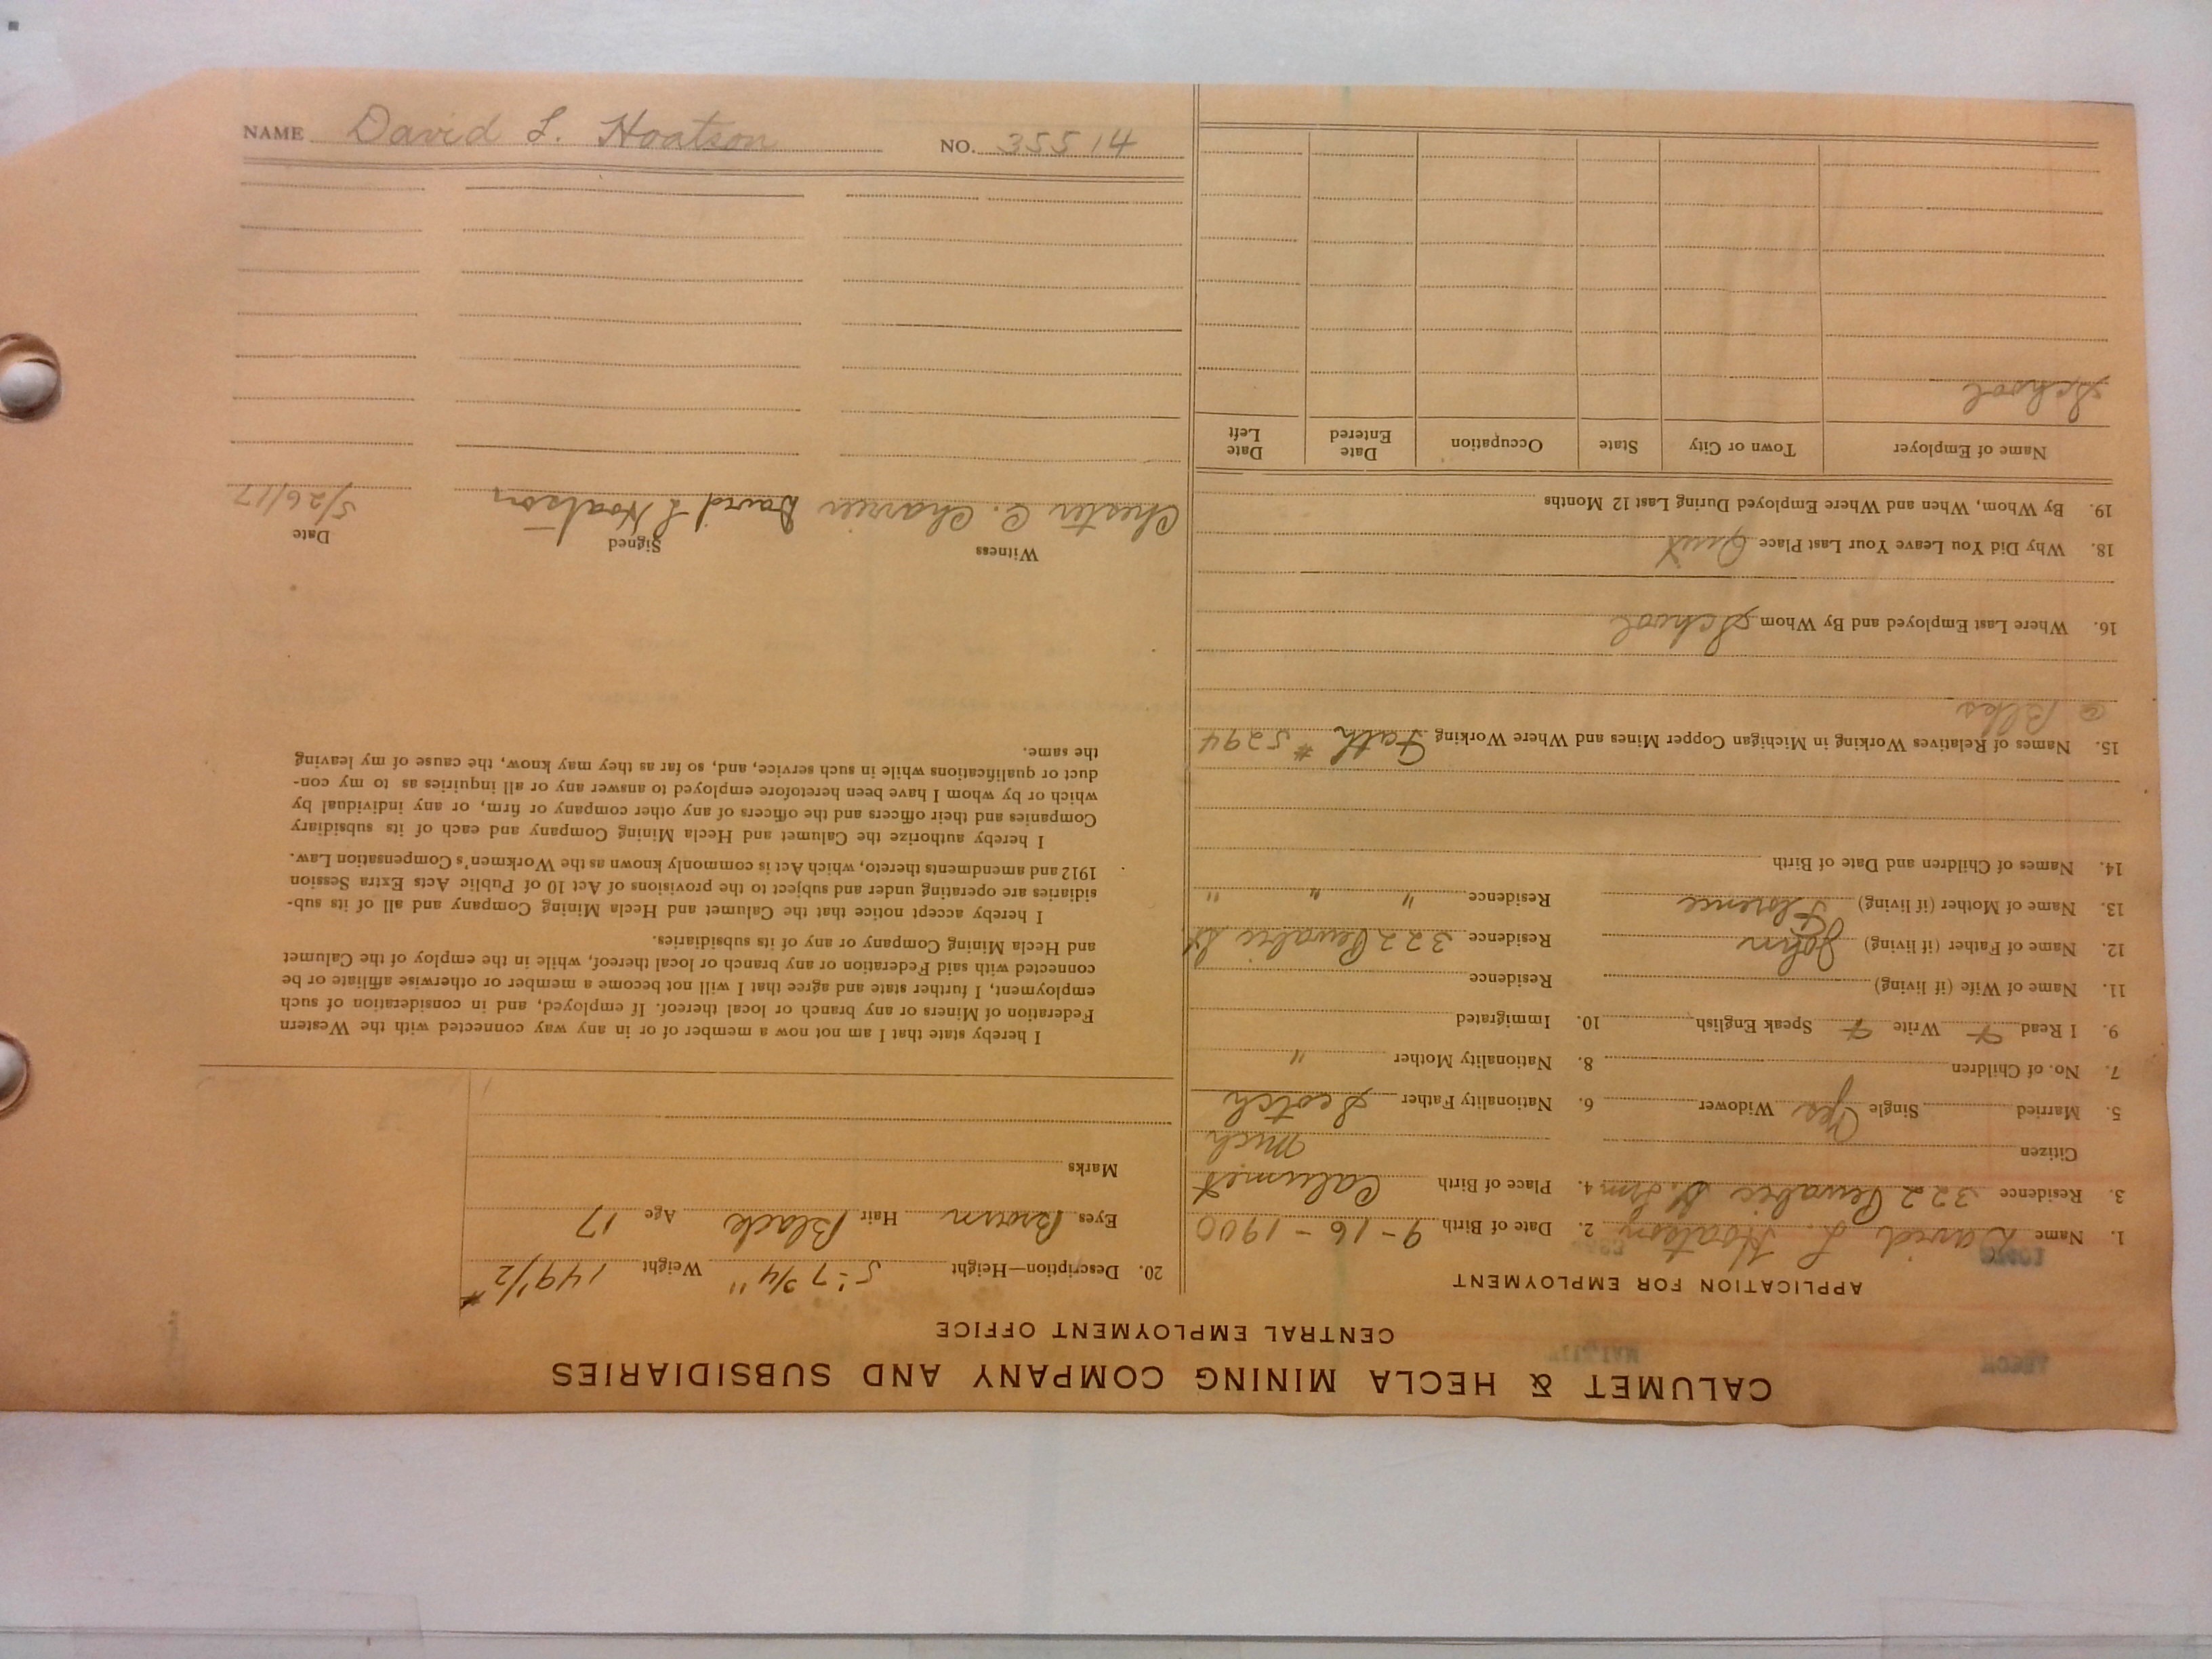 NAME David L. Hoatson NO. 35514
CALUMET & HECLA MINING COMPANY AND SUBSIDIARIES
CENTRAL EMPLOYMENT OFFICE
APPLICATION FOR EMPLOYMENT
1. Name David L. Hoatson 2. Date of Birth 9-16-1900
3. Residence 322 Pewabic St. 4. Place of Birth Calumet
Citizen Mich
5. Married Single Yes Widower 6. Nationality Father Scotch
7. No. of Children 8. Nationality Mother "
9. I Read Write Speak English 10. Immigrated
11. Name of Wife (if living) Residence
12. Name of Father (if living) John Residence 322 Pewabic St
13. Name of Mother (if living) Florence Residence " " "
14. Names of Children and Date of Birth
15. Names of Relatives Working in Michigan Copper Mines and Where Working Fath # 5294
@ Blks
16. Where Last Employed and By Whom School
18. Why Did You Leave Your Last Place Quit
19. By Whom, When and Where Employed During Last 12 Months
Name of Employer Town or City State Occupation Date Entered Date Left
School
20. Description—Height 5'-7 3/4" Weight 149 1/2 #
Eyes Brown Hair Black Age 17
Marks
I hereby state that I am not now a member of or in any way connected with the Western
Federation of Miners or any branch or local thereof. If employed, and in consideration of such
employment, I further state and agree that I will not become a member or otherwise affiliate or be
connected with said Federation or any branch or local thereof, while in the employ of the Calumet
and Hecla Mining Company or any of its subsidiaries.
I hereby accept notice that the Calumet and Hecla Mining Company and all of its sub-
sidiaries are operating under and subject to the provisions of Act 10 of Public Acts Extra Session
1912 and amendments thereto, which Act is commonly known as the Workmen's Compensation Law.
I hereby authorize the Calumet and Hecla Mining Company and each of its subsidiary
Companies and their officers and the officers of any other company or firm, or any individual by
which or by whom I have been heretofore employed to answer any or all inquiries as to my con-
duct or qualifications while in such service, and, so far as they may know, the cause of my leaving
the same.
Witness Signed Date
Chester C. David L Hoatson 5/26/17